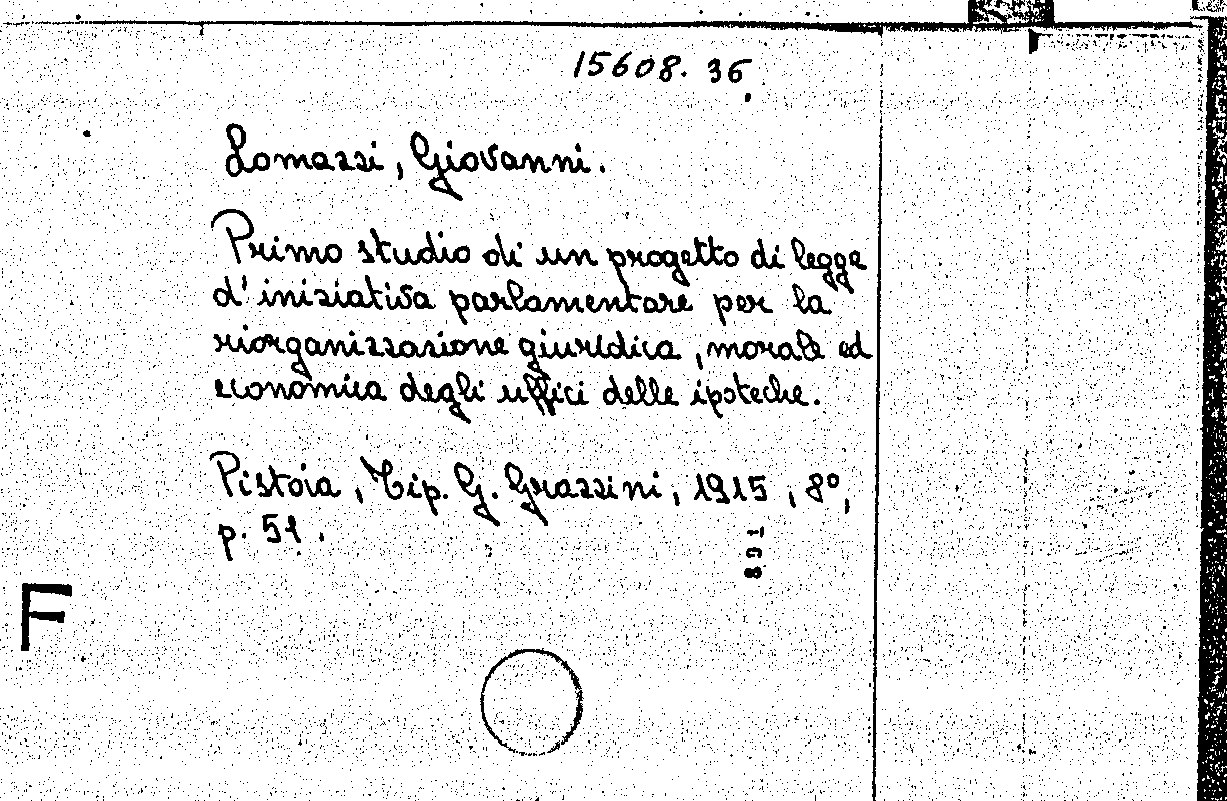 15608. 36.
Lomazzi, Giovanni.
Primo studio di un progetto di legge
d'iniziativa parlamentare per la
riorganizzazione giuridica, morale ed
economica degli uffici delle ipoteche.
Pistoia, Tip. G. Grazzini, 1915, 8°,
p. 51.
891
F